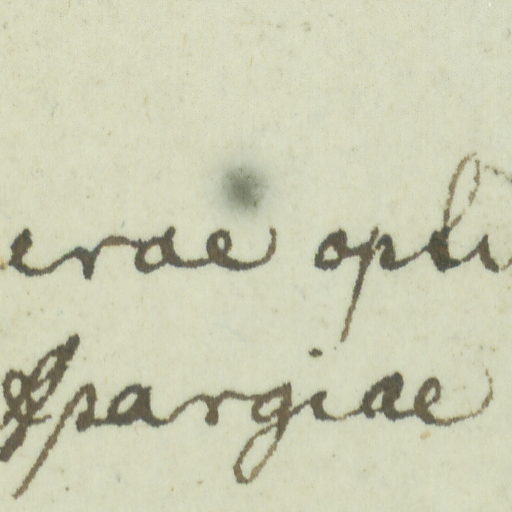 erae opli
Spargiae